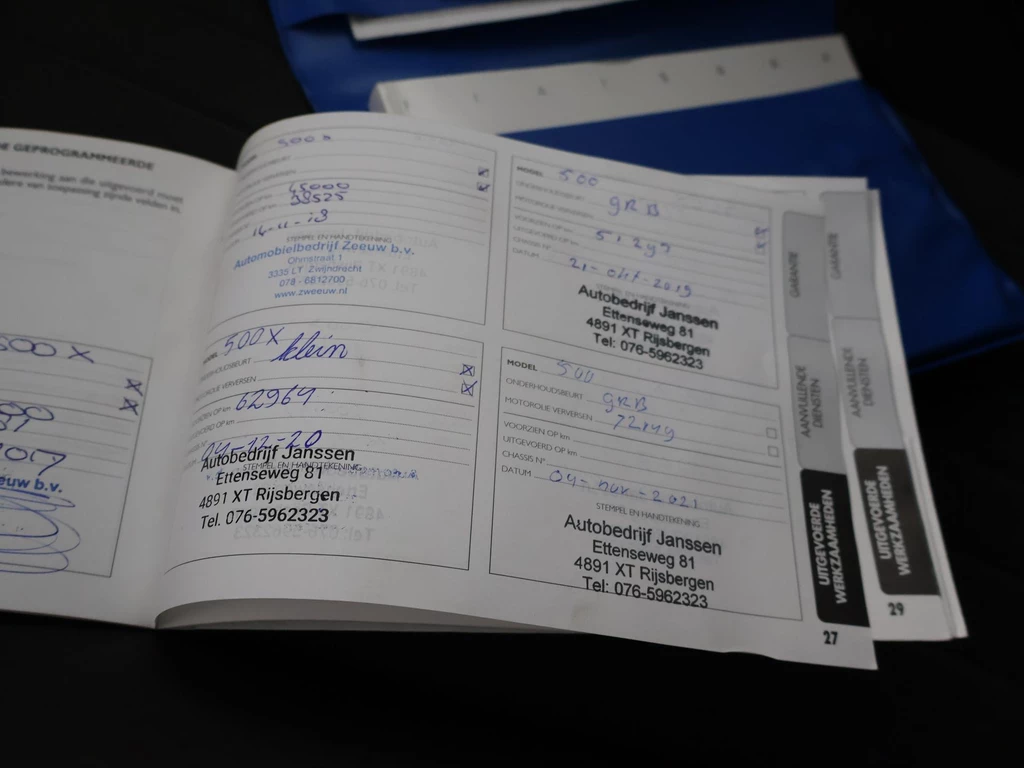 DE GEPROGRAMMEERDE
500 X
2017
euw b.v.
500 x
MOTOROLIE VERVERSEN
45000
38525
14-11-18
STEMPEL EN HANDTEKENING
Automobielbedrijf Zeeuw b.v.
Ohmstraat 1
3335 LT Zwijndrecht
078 - 6812700
www.zweeuw.nl
500 X
ONDERHOUDSBEURT klein
MOTOROLIE VERVERSEN
VOORZIEN OP km 62964
UITGEVOERD OP km
04-12-20
STEMPEL EN HANDTEKENING
Autobedrijf Janssen
Ettenseweg 81
4891 XT Rijsbergen
Tel. 076-5962323
MODEL 500
ONDERHOUDSBEURT GRB
MOTOROLIE VERVERSEN
VOORZIEN OP km 51299
UITGEVOERD OP km
CHASSIS N°
DATUM 21-okt-2019
Autobedrijf Janssen
Ettenseweg 81
4891 XT Rijsbergen
Tel: 076-5962323
MODEL 500
ONDERHOUDSBEURT GRB
MOTOROLIE VERVERSEN 72149
VOORZIEN OP km
UITGEVOERD OP km
CHASSIS N°
DATUM 04-nov-2021
STEMPEL EN HANDTEKENING
Autobedrijf Janssen
Ettenseweg 81
4891 XT Rijsbergen
Tel: 076-5962323
GARANTIE
AANVULLENDE
DIENSTEN
UITGEVOERDE
WERKZAAMHEDEN
27
GARANTIE
AANVULLENDE
DIENSTEN
UITGEVOERDE
WERKZAAMHEDEN
29